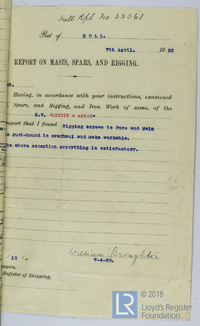 Hull Rpt No 33361
Port of HULL.
7th April. 1922
REPORT ON MASTS, SPARS, AND RIGGING.
Having, in accordance with your instructions, examined
Spars, and Rigging, and Iron Work of same, of the
report that I found Rigging screws to Fore and Main
rust-bound to overhaul and make workable.
above exception everything is satisfactory.
William Broughton
7-4-22.
Register of Shipping.
© 2018
Lloyd's Register
Foundation